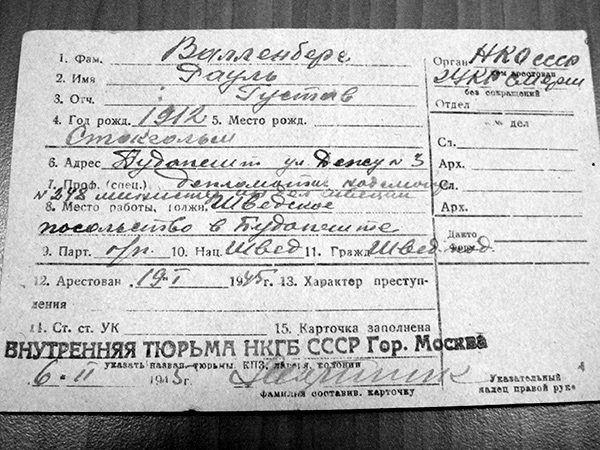 1. Фам. Валленберг
2. Имя Рауль
3. Отч. : Густав
4. Год рожд. 1912 5. Место рожд.
Стокгольм
6. Адрес Будапешт ул Дежу № 3
7. Проф. (спец.) дипломатич.
8. Место работы, должн. Шведское
посольство в Будапеште
9. Парт. б/п. 10. Нац. Швед 11. Гражд. Швед. под.
12. Арестован 19-I 1945 г. 13. Характер преступ-
ления
14. Ст. ст. УК 15. Карточка заполнена
ВНУТРЕННЯЯ ТЮРЬМА НКГБ СССР Гор. Москва
указать назван. тюрьмы, КПЗ, лагеря, колонии
6-II 1945 г.
фамилия составив. карточку
Орган НКО СССР
кем арестован
без сокращений
Отдел
дел
Сл.
Арх.
Сл.
Арх.
Дакто
Указательный
палец правой руки